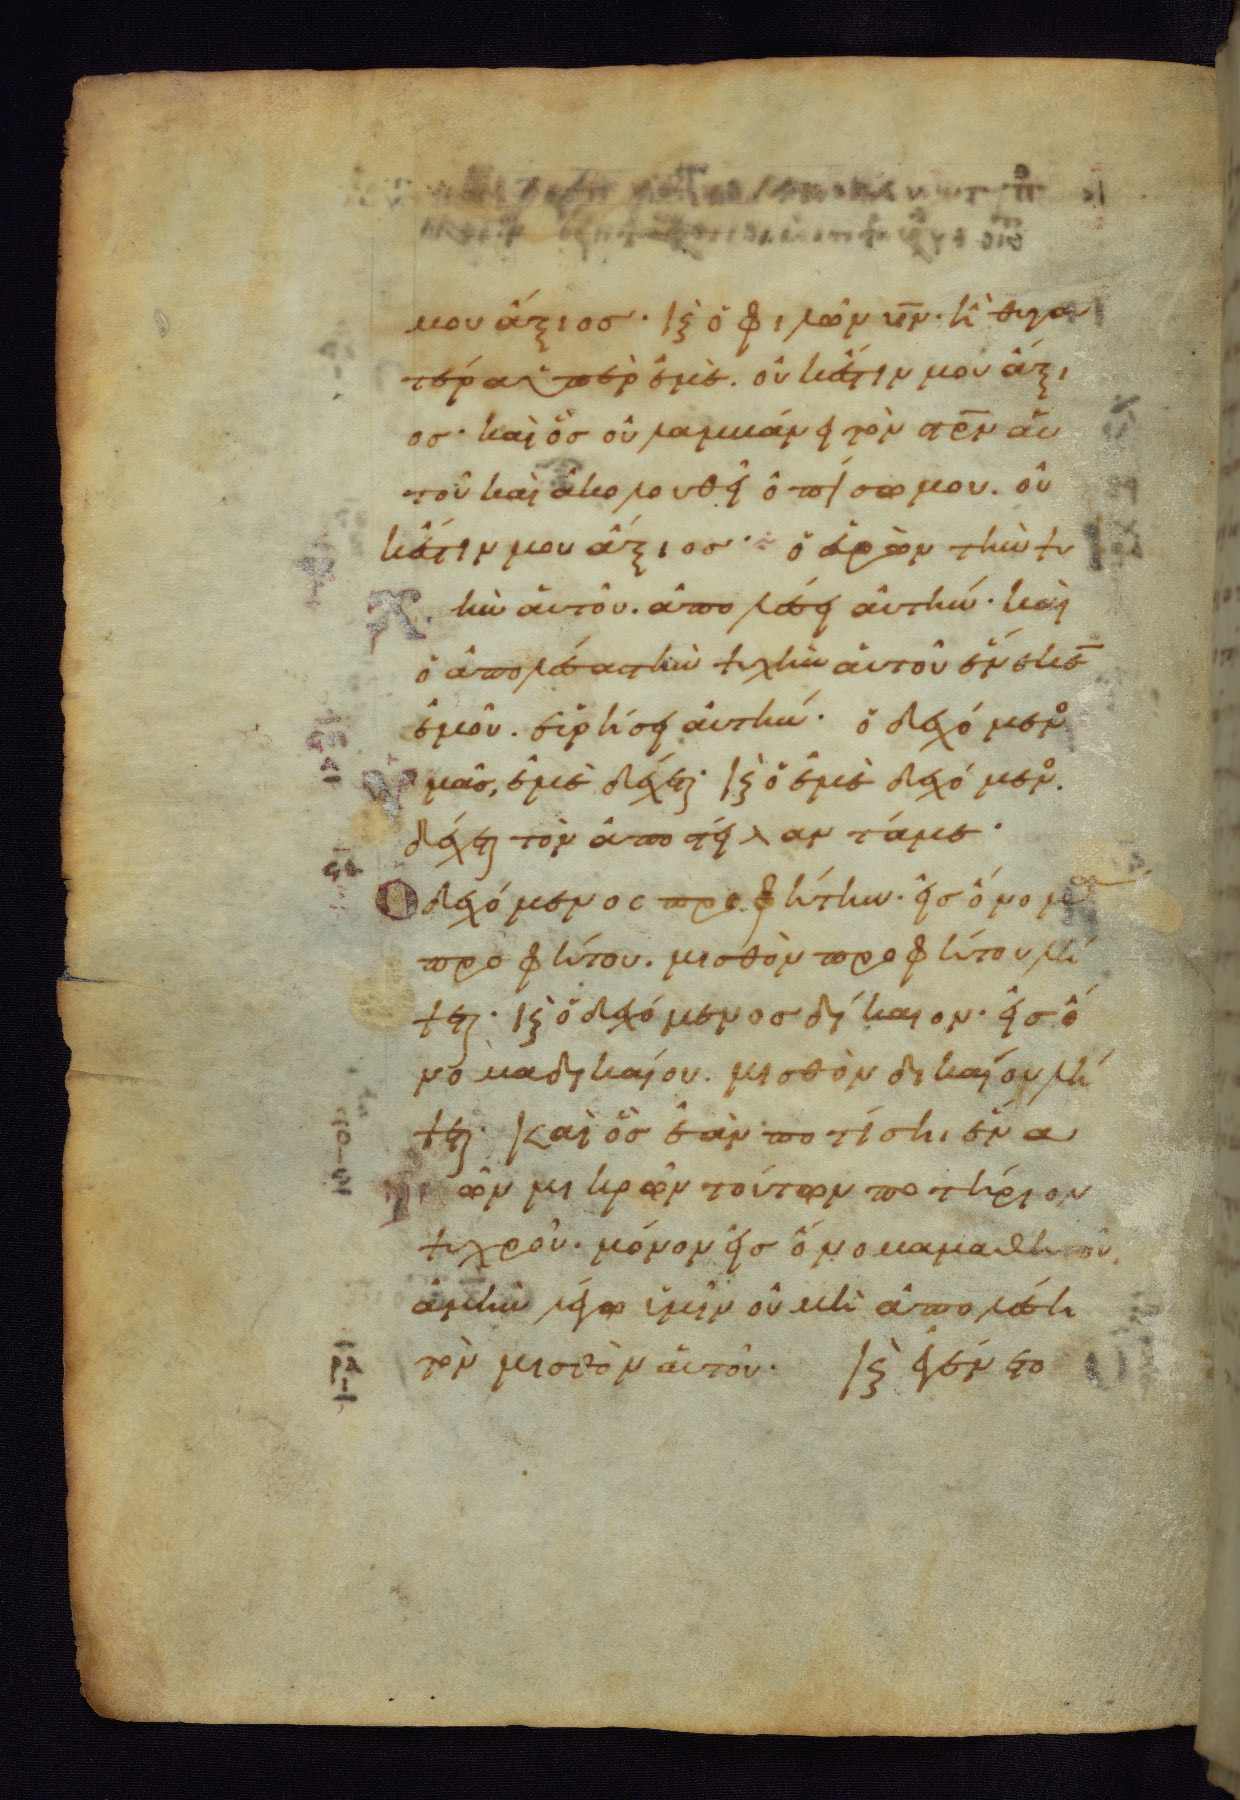 μου ἄξιος· κ(αὶ) ὁ φιλῶν υν̅· ἢ θυγα
τέρα ὑπὲρ ἐμὲ. οὐκ ἔστιν μου ἄξι
ος· καὶ ὃς οὐ λαμβάνει τὸν στρ̅ν αὐ
τοῦ καὶ ἀκολουθεῖ ὀπίσω μου. οὐ
κ ἔστιν μου ἄξιος· ὁ εὑρὼν τὴν ψυ
χὴν αὐτοῦ. ἀπολέσει αὐτήν· καὶ
ὁ ἀπολέσας τὴν ψυχὴν αὐτοῦ ἕνεκε̅
ἐμοῦ. εὑρήσει αὐτήν· ὁ δεχόμεν(ος)
ὑμᾶς, ἐμὲ δέχεται· κ(αὶ) ὁ ἐμὲ δεχόμεν(ος).
δέχεται τὸν ἀποστείλαντά με·
Ὁ δεχόμενος προφήτην· εἰς ὄνομα
προφήτου. μισθὸν προφήτου λή
ψεται· κ(αὶ) ὁ δεχόμενος δίκαιον· εἰς ὄ
νομα δικαίου. μισθὸν δικαίου λή
ψεται· Καὶ ὃς ἐὰν ποτίσῃ ἕνα
τῶν μικρῶν τούτων ποτήριον
ψυχροῦ· μόνον εἰς ὄνομα μαθητοῦ.
ἀμὴν λέγω ὑμῖν οὐ μὴ ἀπολέσῃ
ρα
τὸν μισθὸν αὐτοῦ· κ(αὶ) ἐγένετο